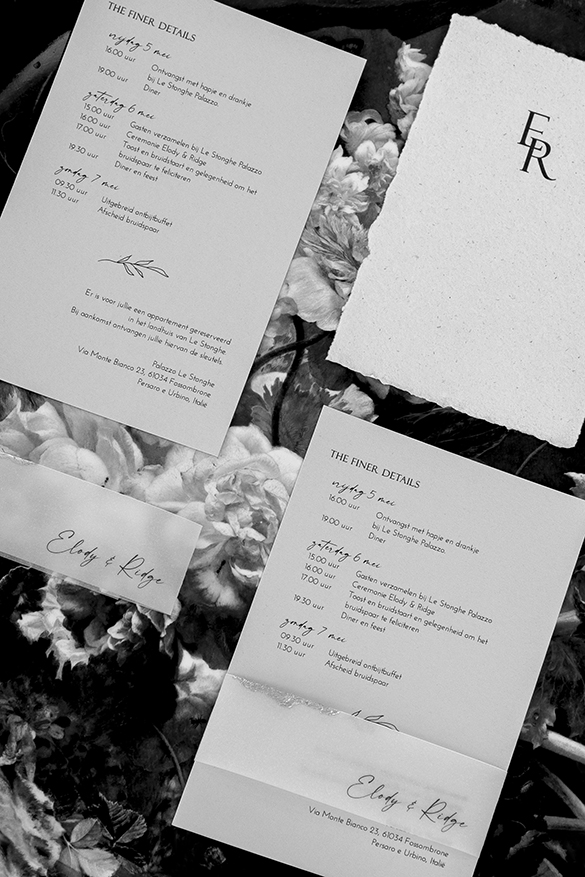 THE FINER DETAILS
vrijdag 5 mei
16.00 uur Ontvangst met hapje en drankje
bij Le Stonghe Palazzo.
19.00 uur Diner
zaterdag 6 mei
15.00 uur Gasten verzamelen bij Le Stonghe Palazzo
16.00 uur Ceremonie Elody & Ridge
17.00 uur Toost en bruidstaart en gelegenheid om het
bruidspaar te feliciteren
19.30 uur Diner en feest
zondag 7 mei
09.30 uur Uitgebreid ontbijtbuffet
11.30 uur Afscheid bruidspaar
Er is voor jullie een appartement gereserveerd
in het landhuis van Le Stonghe.
Bij aankomst ontvangen jullie hiervan de sleutels.
Palazzo Le Stonghe
Via Monte Bianco 23, 61034 Fossombrone
Persaro e Urbino, Italië
Elody & Ridge
ER
THE FINER DETAILS
vrijdag 5 mei
16.00 uur Ontvangst met hapje en drankje
bij Le Stonghe Palazzo.
19.00 uur Diner
zaterdag 6 mei
15.00 uur Gasten verzamelen bij Le Stonghe Palazzo
16.00 uur Ceremonie Elody & Ridge
17.00 uur Toost en bruidstaart en gelegenheid om het
bruidspaar te feliciteren
19.30 uur Diner en feest
zondag 7 mei
09.30 uur Uitgebreid ontbijtbuffet
11.30 uur Afscheid bruidspaar
Elody & Ridge
Via Monte Bianco 23, 61034 Fossombrone
Persaro e Urbino, Italië